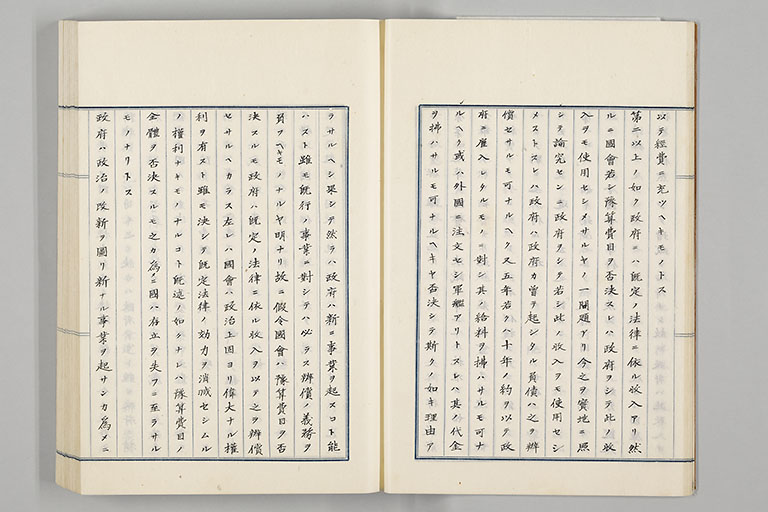 以テ經費ニ充ツヘキモノトス
第二以上ノ如ク政府ニハ既定ノ法律ニ依ル收入アリ然
ルニ國會若シ豫算費目ヲ否決スレハ政府ヲシテ此ノ收
入ヲモ使用セシメサルヤノ一問題アリ今之ヲ實地ニ照
シテ論究センニ政府ヲシテ若シ此ノ收入ヲモ使用セシ
メストスレハ政府ハ政府カ曾テ起シタル負債ハ之ヲ辨
償セサルモ可ナルヘク又五年若クハ十年ノ約ヲ以テ政
府ニ雇入レタルモノニ對シ其ノ給料ヲ拂ハサルモ可ナ
ルヘク或ハ外國ニ注文セシ軍艦アリトスレハ其ノ代金
ヲ拂ハサルモ可ナルヘキヤ否決シテ斯クノ如キ理由ア
ラサルヘシ果シテ然ラハ政府ハ新ニ事業ヲ起スコト能
ハスト雖モ既行ノ事業ニ對シテハ必ラス辨償ノ義務ヲ
負フヘキモノナルヤ明ナリ故ニ假令國會ハ豫算費目ヲ否
決スルモ政府ハ既定ノ法律ニ依ル收入ヲ以テ之ヲ辨償
セサルヘカラス左レハ國會ハ政治上固ヨリ偉大ナル權
利ヲ有スト雖モ決シテ既定法律ノ効力ヲ消滅セシムル
ノ權利ナキモノナルコト既述ノ如シサレハ豫算費目ノ
全體ヲ否決スルモ之カ為メニ國ハ存立ヲ失フニ至ラサル
モノナリトス
政府ハ政治ノ改新ヲ圖リ新ナル事業ヲ起サンカ為メニ